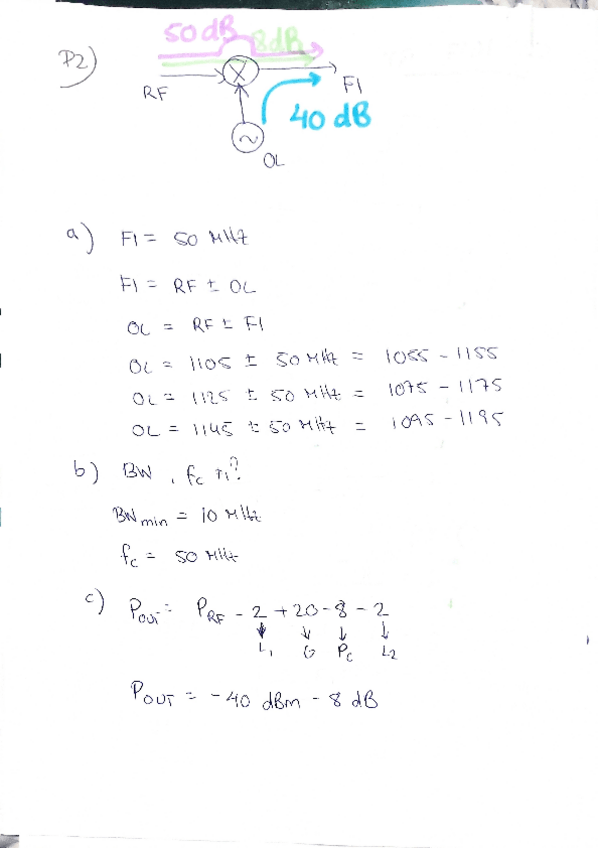 P2)
50 dB
8dB
RF
FI
40 dB
OL
a) FI = 50 MHz
FI = RF ± OL
OL = RF ± FI
OL = 1105 ± 50 MHz = 1055 - 1155
OL = 1125 ± 50 MHz = 1075 - 1175
OL = 1145 ± 50 MHz = 1095 - 1195
b) BW, fc
BW min = 10 MHz
fc = 50 MHz
c) POUT = PRF - 2 + 20 - 8 - 2
L1 G PC L2
POUT = -40 dBm - 8 dB